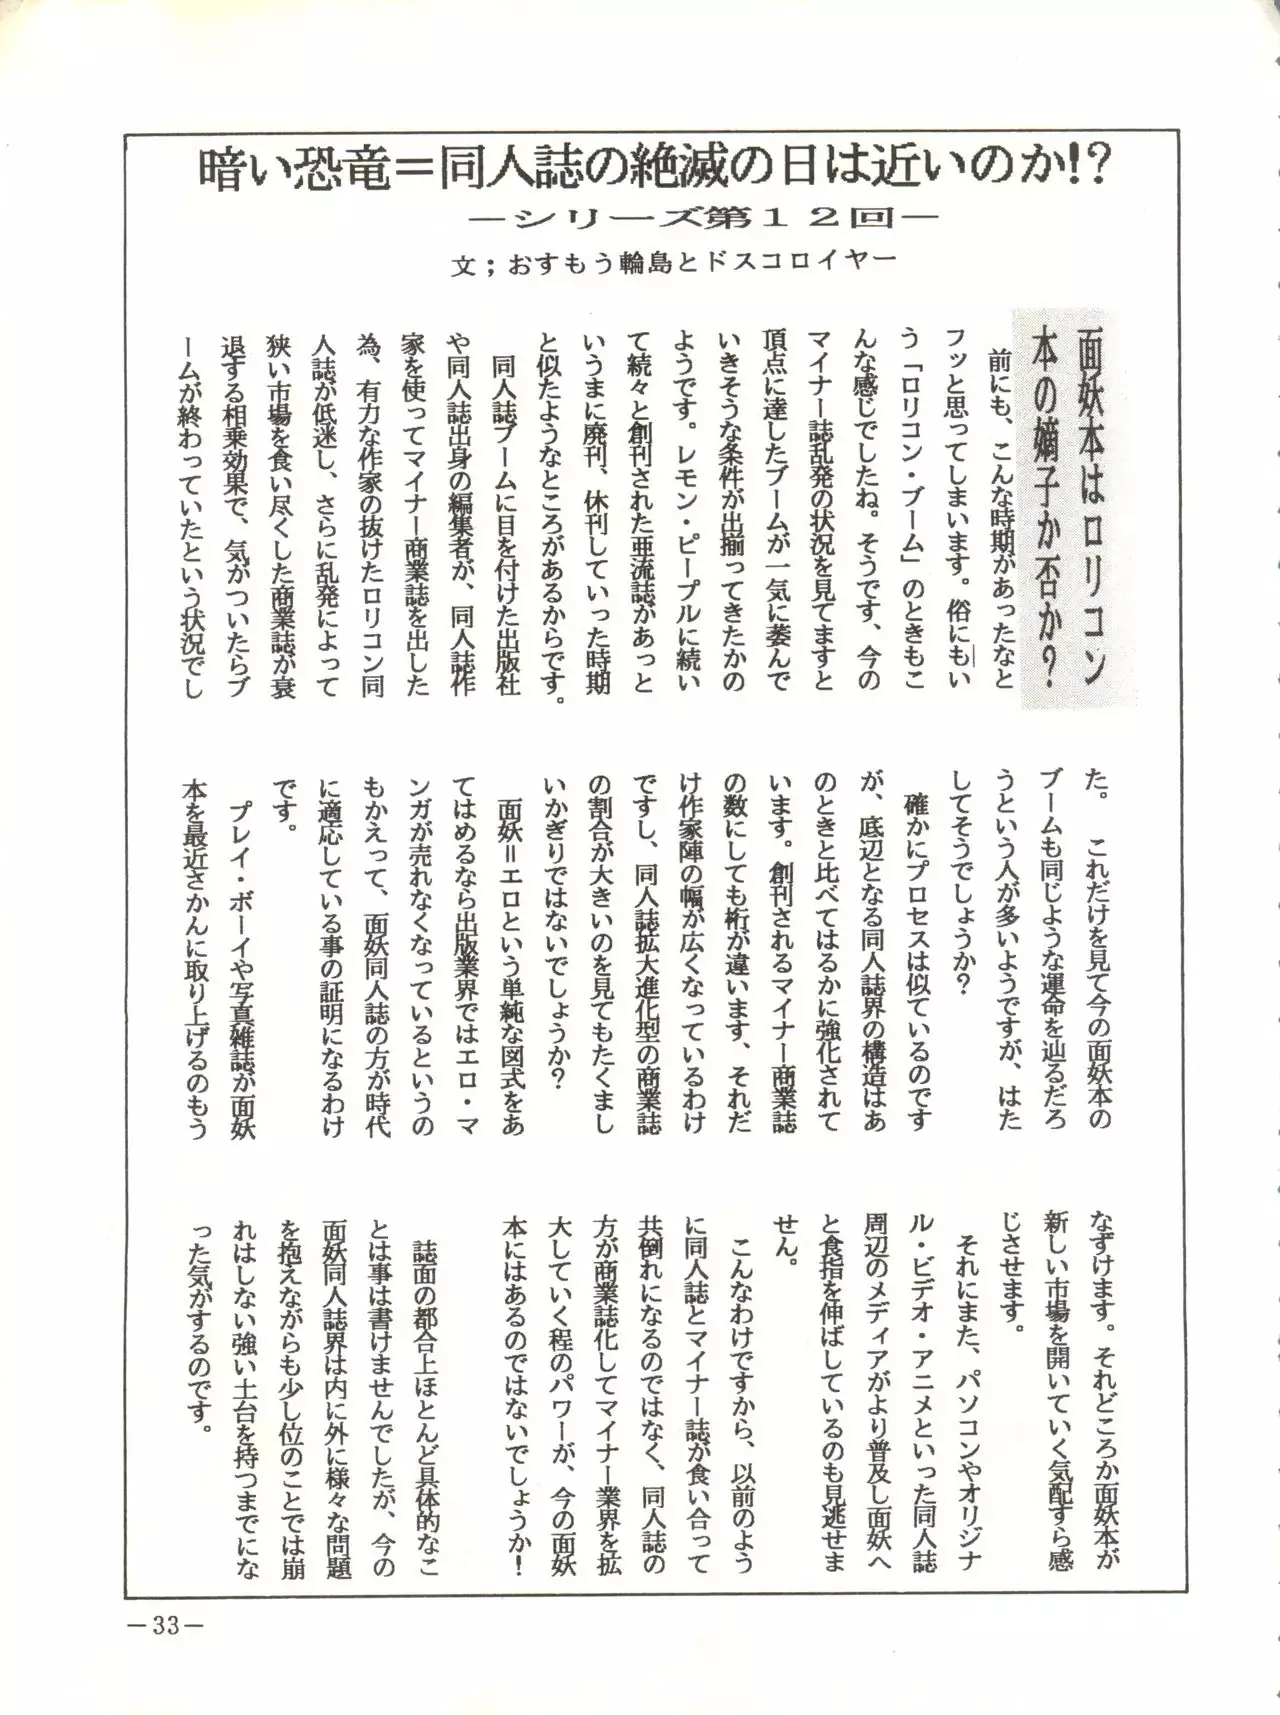 暗い恐竜＝同人誌の絶滅の日は近いのか!?
―シリーズ第１２回―
文；おすもう輪島とドスコロイヤー
面妖本はロリコン
本の嫡子か否か？
前にも、こんな時期があったなと
フッと思ってしまいます。俗にもい
う「ロリコン・ブーム」のときもこ
んな感じでしたね。そうです、今の
マイナー誌乱発の状況を見てますと
頂点に達したブームが一気に萎んで
いきそうな条件が出揃ってきたかの
ようです。レモン・ピープルに続い
て続々と創刊された亜流誌があっと
いうまに廃刊、休刊していった時期
と似たようなところがあるからです。
同人誌ブームに目を付けた出版社
や同人誌出身の編集者が、同人誌作
家を使ってマイナー商業誌を出した
為、有力な作家の抜けたロリコン同
人誌が低迷し、さらに乱発によって
狭い市場を食い尽くした商業誌が衰
退する相乗効果で、気がついたらブ
ームが終わっていたという状況でし
た。　これだけを見て今の面妖本の
ブームも同じような運命を辿るだろ
うという人が多いようですが、はた
してそうでしょうか？
確かにプロセスは似ているのです
が、底辺となる同人誌界の構造はあ
のときと比べてはるかに強化されて
います。創刊されるマイナー商業誌
の数にしても桁が違います、それだ
け作家陣の幅が広くなっているわけ
ですし、同人誌拡大進化型の商業誌
の割合が大きいのを見てもたくまし
いかぎりではないでしょうか？
面妖＝エロという単純な図式をあ
てはめるなら出版業界ではエロ・マ
ンガが売れなくなっているというの
もかえって、面妖同人誌の方が時代
に適応している事の証明になるわけ
です。
プレイ・ボーイや写真雑誌が面妖
本を最近さかんに取り上げるのもう
なずけます。それどころか面妖本が
新しい市場を開いていく気配すら感
じさせます。
それにまた、パソコンやオリジナ
ル・ビデオ・アニメといった同人誌
周辺のメディアがより普及し面妖へ
と食指を伸ばしているのも見逃せま
せん。
こんなわけですから、以前のよう
に同人誌とマイナー誌が食い合って
共倒れになるのではなく、同人誌の
方が商業誌化してマイナー業界を拡
大していく程のパワーが、今の面妖
本にはあるのではないでしょうか！
誌面の都合上ほとんど具体的なこ
とは事は書けませんでしたが、今の
面妖同人誌界は内に外に様々な問題
を抱えながらも少し位のことでは崩
れはしない強い土台を持つまでにな
った気がするのです。
―33―